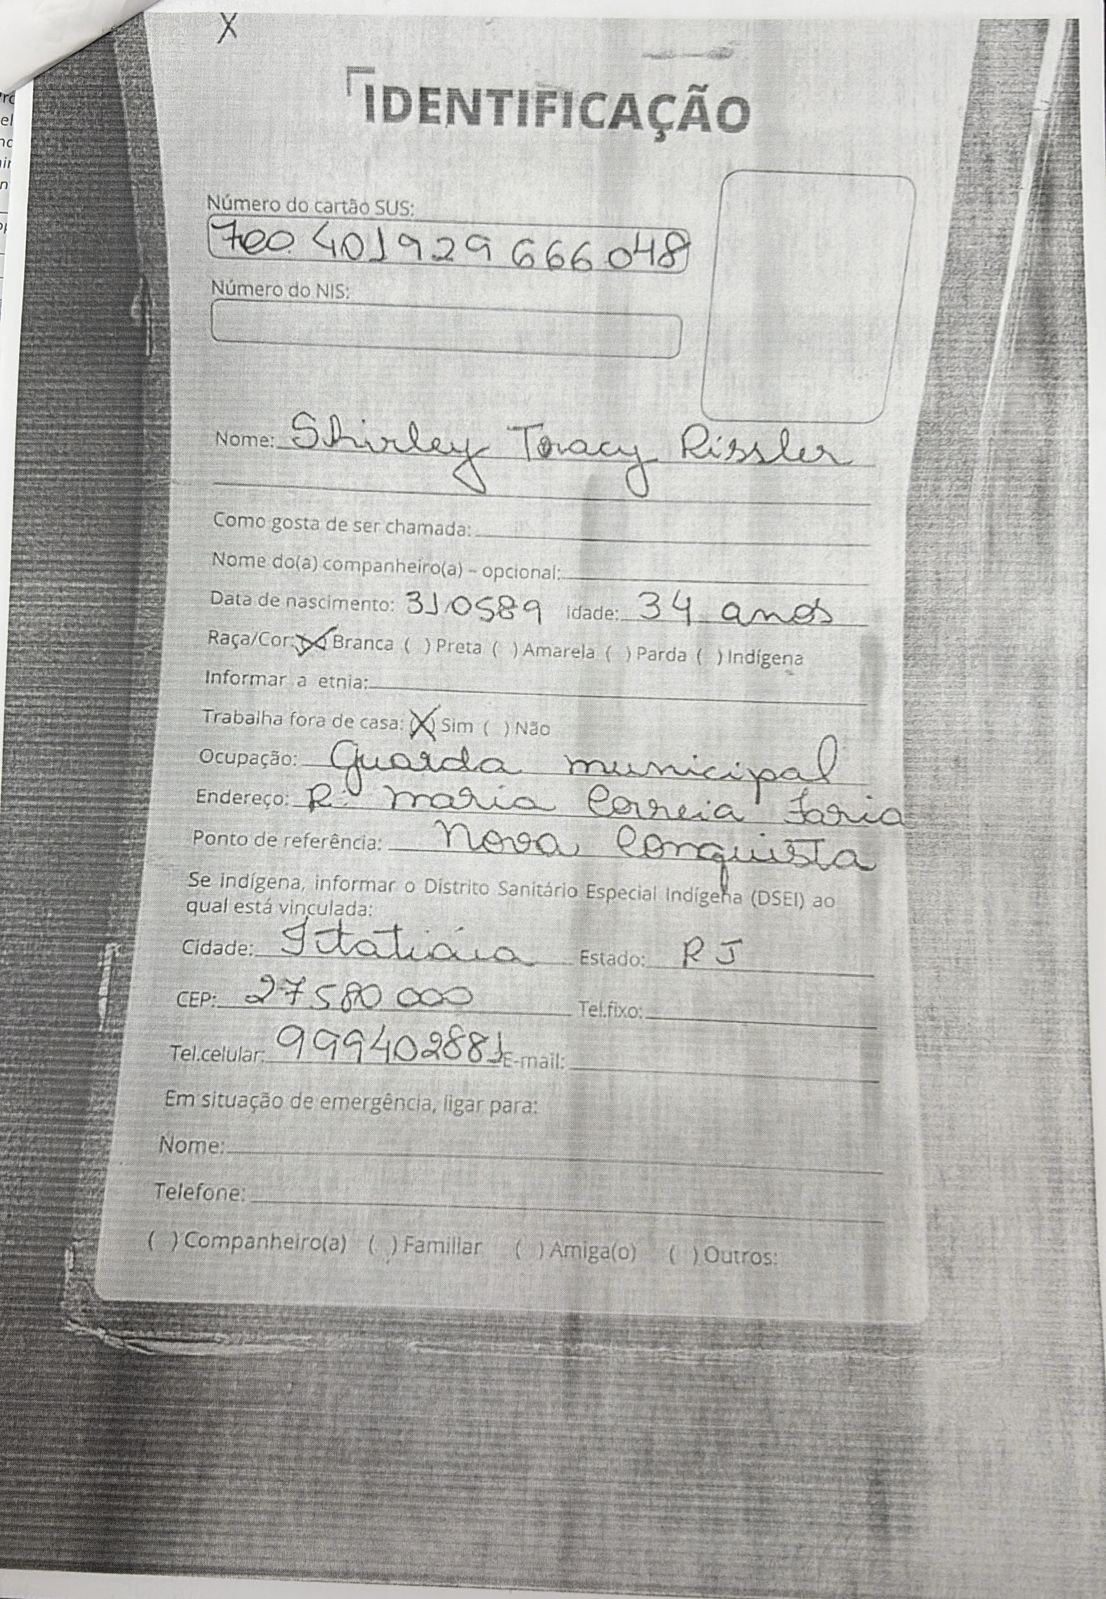 X
IDENTIFICAÇÃO
Número do cartão SUS:
700 401929 666048
Número do NIS:
Nome: Shirley Toracy Rissler
Como gosta de ser chamada:
Nome do(a) companheiro(a) – opcional:
Data de nascimento: 310589 Idade: 34 anos
Raça/Cor: (X) Branca ( ) Preta ( ) Amarela ( ) Parda ( ) Indígena
Informar a etnia:
Trabalha fora de casa: (X) Sim ( ) Não
Ocupação: Guarda municipal
Endereço: R. maria Correia Faria
Ponto de referência: nova Conquista
Se indígena, informar o Distrito Sanitário Especial Indígena (DSEI) ao
qual está vinculada:
Cidade: Itatiaia Estado: RJ
CEP: 27580 000 Tel.fixo:
Tel.celular: 999402881 E-mail:
Em situação de emergência, ligar para:
Nome:
Telefone:
( ) Companheiro(a) ( ) Familiar ( ) Amiga(o) ( ) Outros: